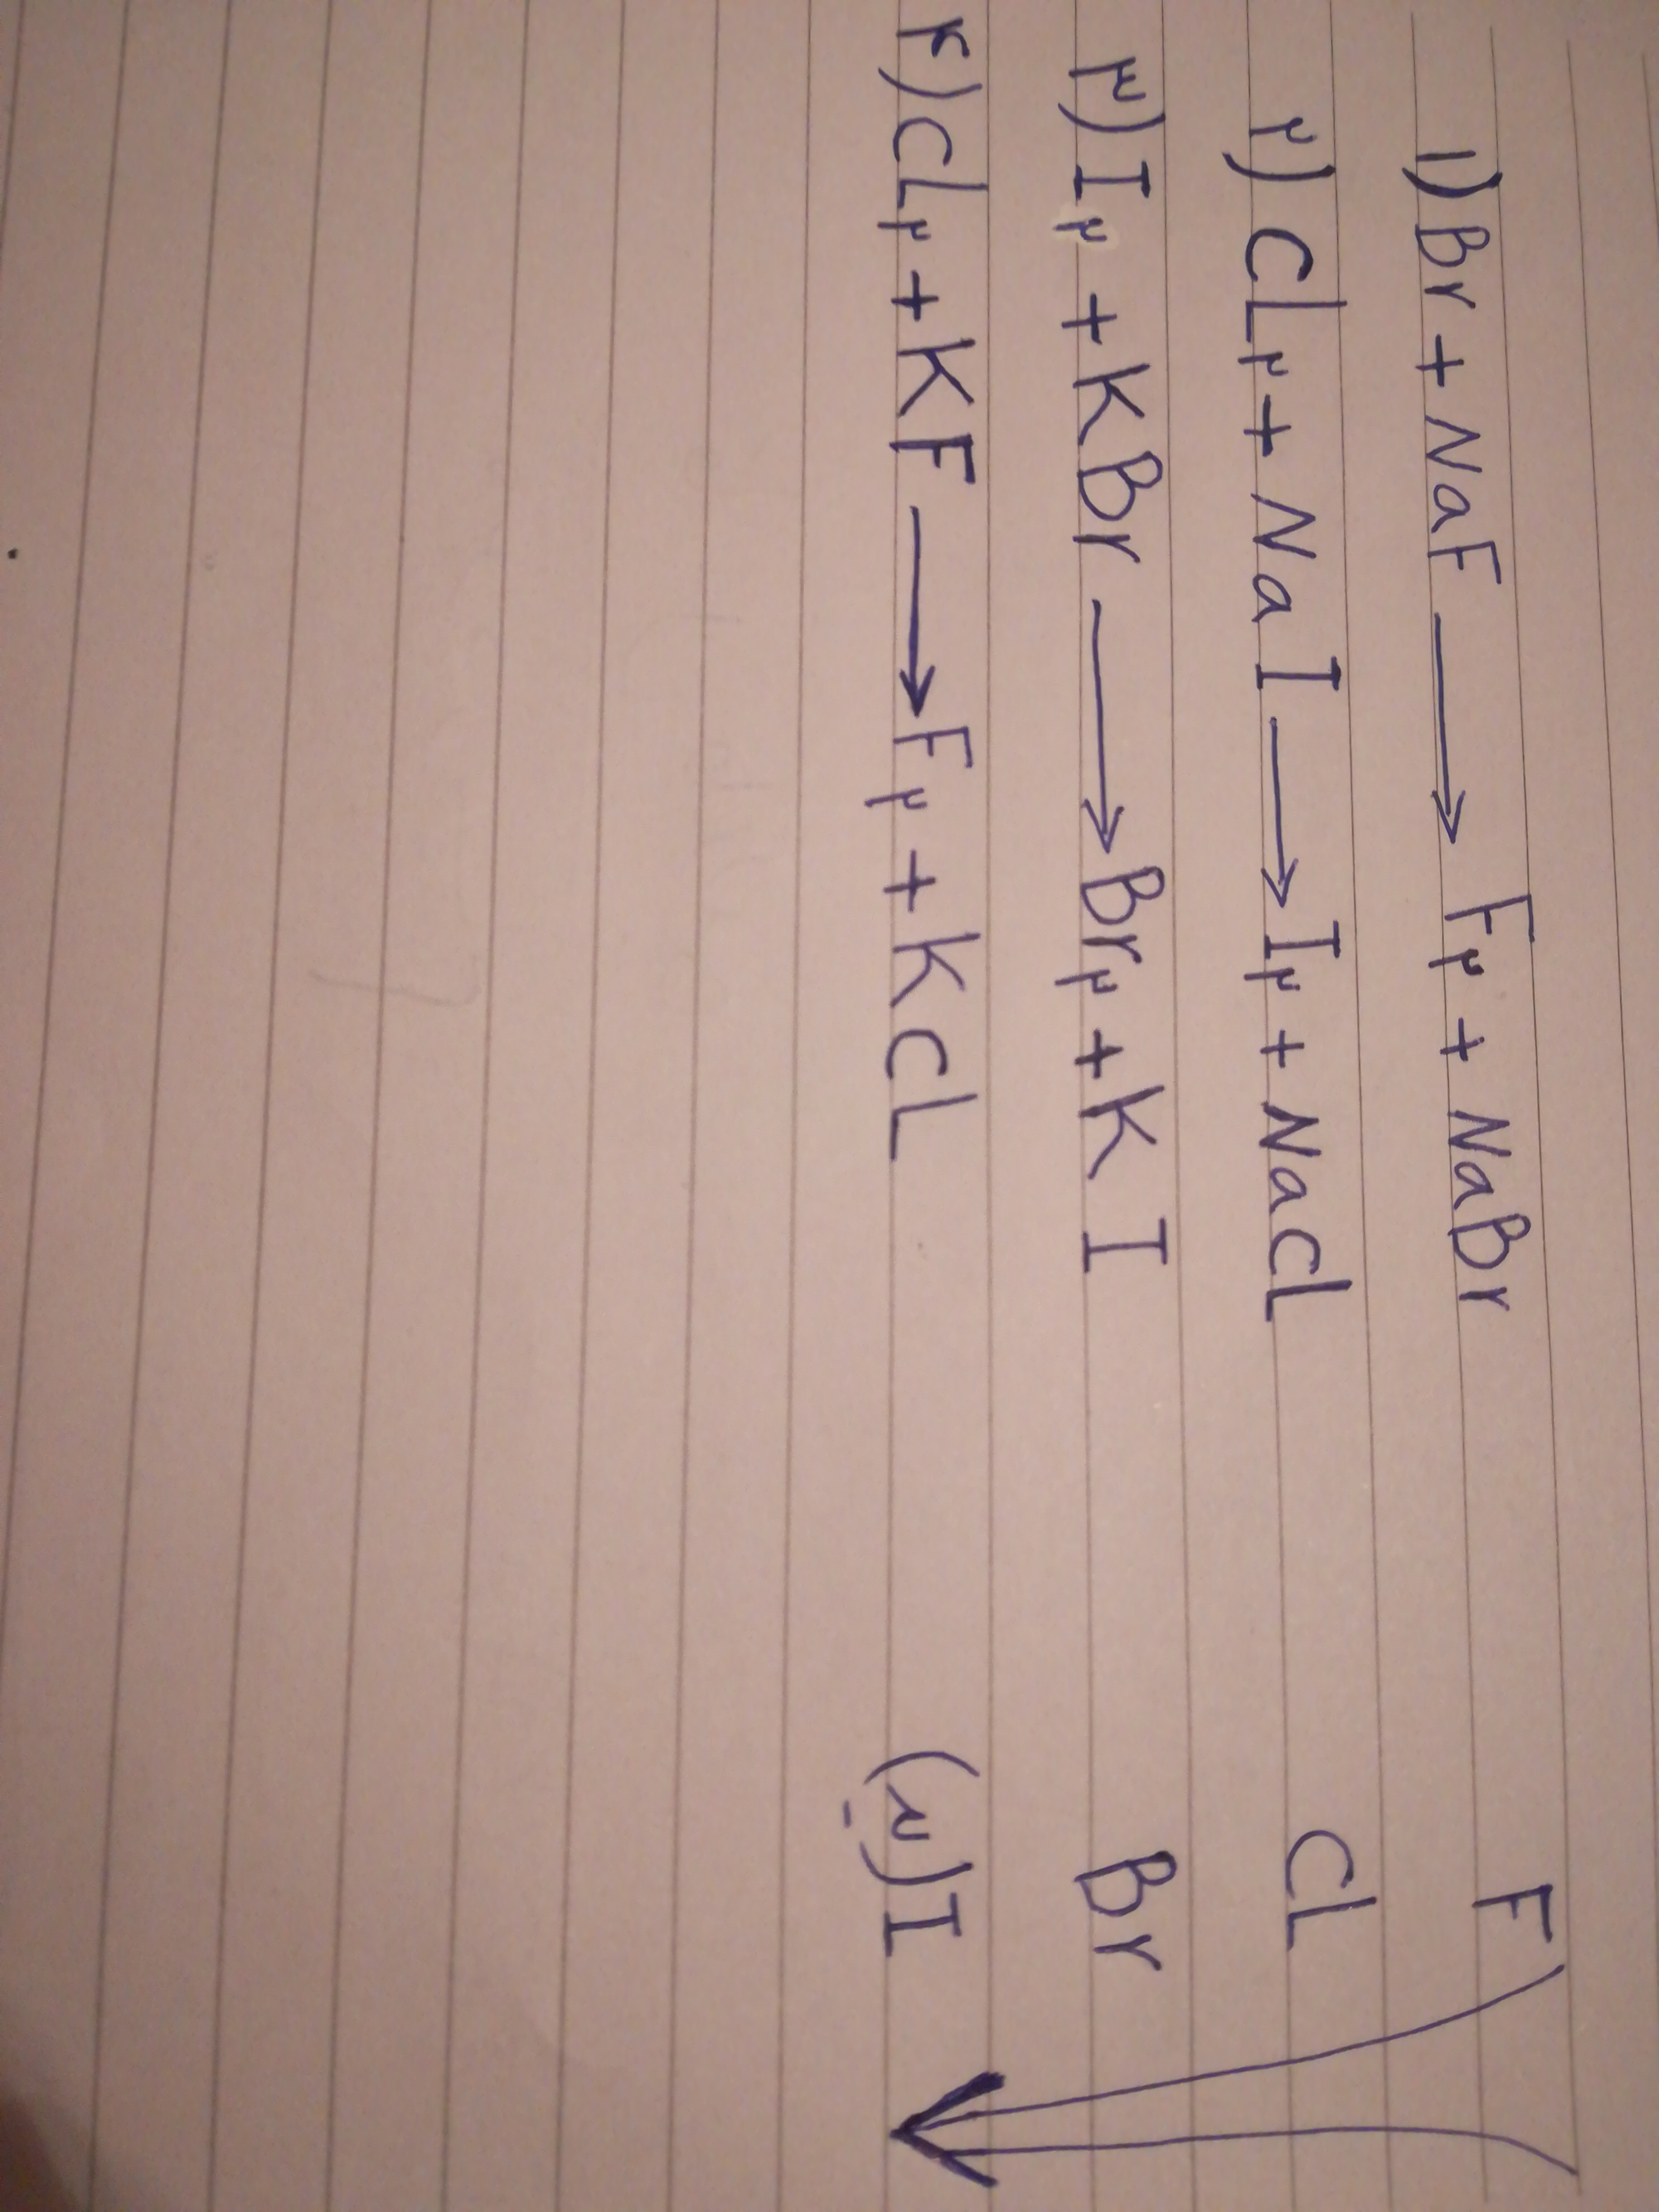 ۱) Br + NaF → F۲ + NaBr
۲) CL۲ + NaI → I۲ + NaCL
۳) I۲ + KBr → Br۲ + KI
۴) CL۲ + KF → F۲ + KCL
F
CL
Br
I